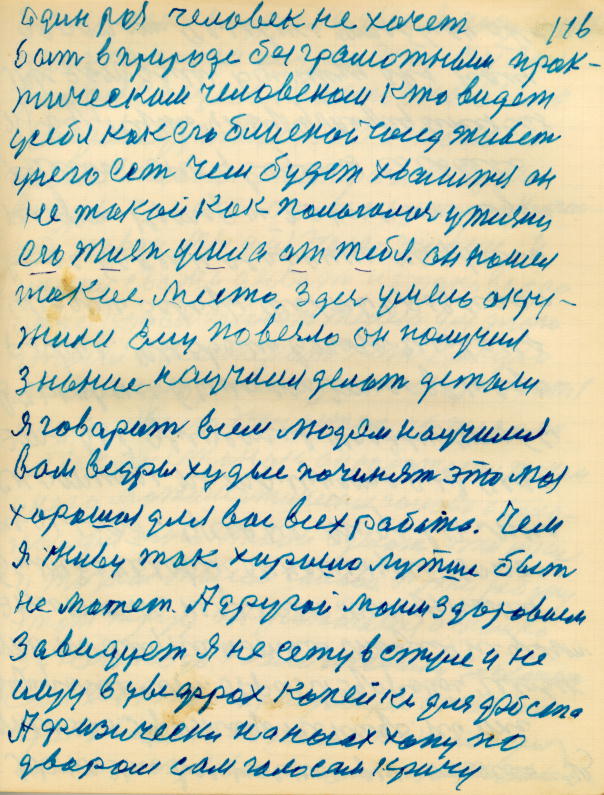 один раз человек не хочет 116
быт в природе безграмотным прак-
тическим человеком кто видет
у себя как его близкой сосед живет
у него ест чем будет хвалится он
не такой как пологался у жизни
его жизн ушла от тебя. он нашел
такое место. здес умело окру-
жили ему повезло он получил
знание научили делат детали
я говарит всем людям научился
вам ведры худые починят это моя
хорошая для вас всех работа. Чем
я живу так хорошо лутше быт
не может. А другой моим здоровием
завидует я не сежу в стуле и не
ищу в цифрах копейки для
А физически на ногах хожу по
дварам сам голосам кричу